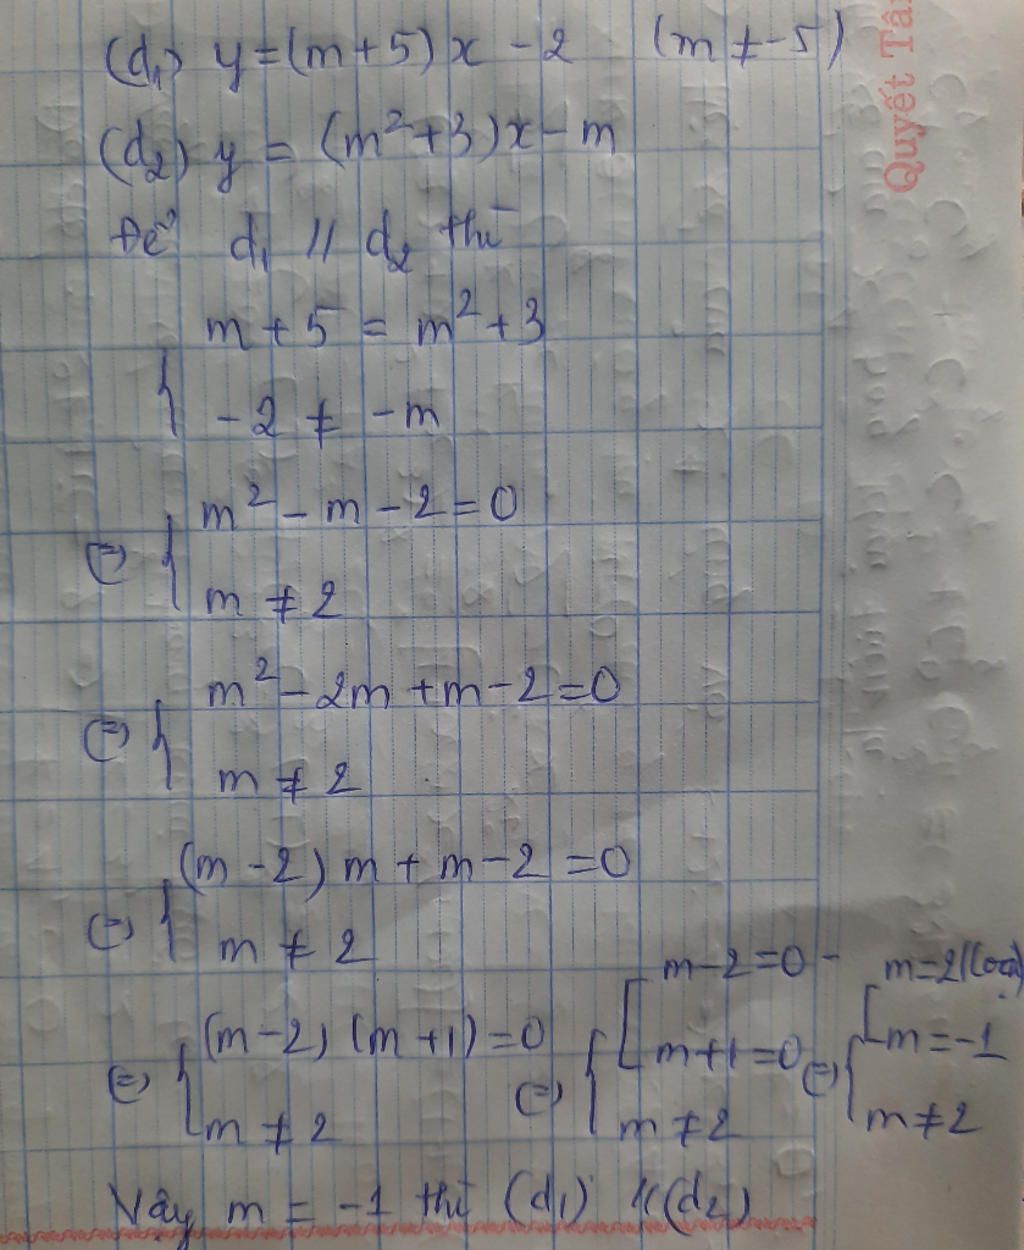 (d₁) y = (m+5)x - 2 (m ≠ -5)
(d₂) y = (m²+3)x - m
Để d₁ // d₂ thì
{ m + 5 = m² + 3
-2 ≠ -m
⇔ { m² - m - 2 = 0
m ≠ 2
⇔ { m² - 2m + m - 2 = 0
m ≠ 2
⇔ { (m - 2) m + m - 2 = 0
m ≠ 2
⇔ { (m - 2) (m + 1) = 0
m ≠ 2
⇔ { [ m - 2 = 0
m + 1 = 0
m ≠ 2
⇔ { [ m = 2 (loại)
m = -1
m ≠ 2
Vậy m = -1 thì (d₁) // (d₂)
Quyết